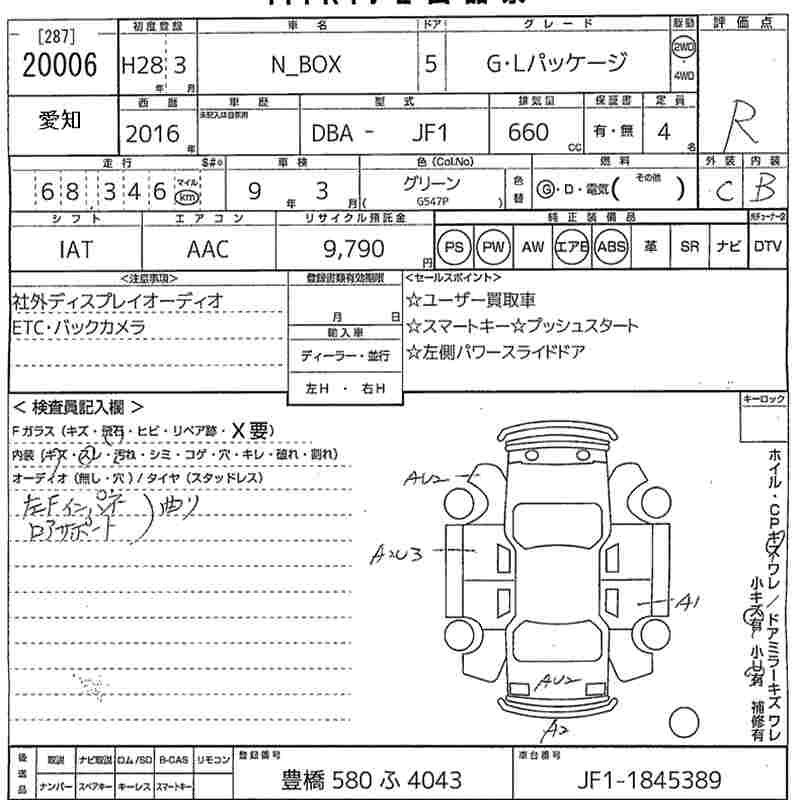 [287]
20006
初度登録
車名
ドア
グレード
駆動
評価点
H28 3
年 月
N_BOX
5
G・Lパッケージ
2WD
・
4WD
R
愛知
西暦
車歴
型式
排気量
保証書
定員
未記入は自家用
2016 年
DBA - JF1
660 cc
有・無
4 名
走行
S#*
車検
色(Col.No)
燃料
外装
内装
68,346
マイル
km
9 年 3 月
グリーン
( G547P )
色替
G・D・電気( その他 )
C
B
シフト
エアコン
リサイクル預託金
純正装備品
IAT
AAC
9,790 円
PS
PW
AW
エアB
ABS
革
SR
ナビ
DTV
<注意事項>
登録書類有効期限
<セールスポイント>
社外ディスプレイオーディオ
ETC・バックカメラ
月 日
輸入車
ディーラー・並行
左H ・ 右H
☆ユーザー買取車
☆スマートキー☆プッシュスタート
☆左側パワースライドドア
< 検査員記入欄 >
キーロック
Fガラス(キズ・飛石・ヒビ・リペア跡・X要)
内装(キズ・スレ・汚れ・シミ・コゲ・穴・キレ・破れ・割れ)
オーディオ(無し・穴)/タイヤ(スタッドレス)
左Fインパネ
ロアサポート
)曲り
AU2
A2U3
A1
AU2
A2
ホイル・CPキズワレ/ドアミラーキズワレ
小キズ有 小U有 補修有
後送品
取説
ナビ取説
ロム/SD
B-CAS
リモコン
ナンバー
スペアキー
キーレス
スマートキー
登録番号
豊橋 580 ふ 4043
車台番号
JF1-1845389